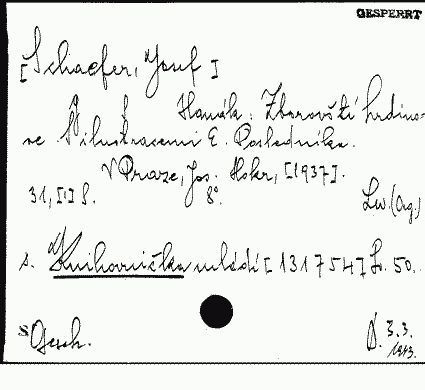 GESPERRT
[Schaefer, Josef]
Hanák: Zborovští hrdinové
se ilustracemi E. Posledníka.
V Praze, Jos. Hokr, [1937].
31, [1] S. 8°. Lw. (Org.)
s. Knihovnička mládí [131754] L. 50.
S Gesch. D. 3.3.
1943.